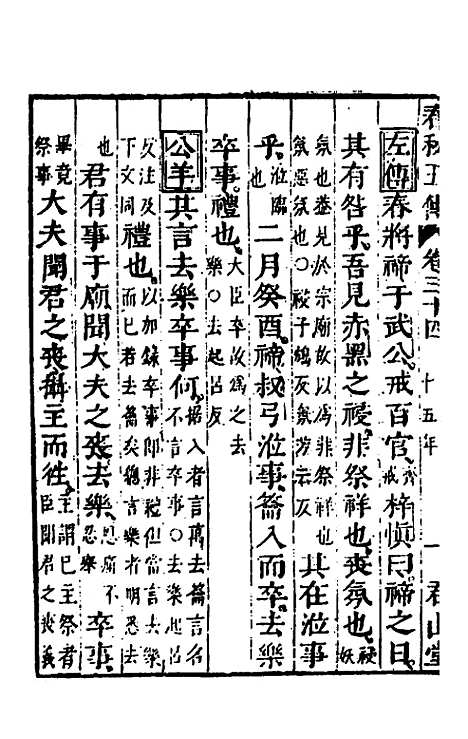 春秋五傳 卷三十四 十五年 一 君山堂
左傳春將禘于武公戒百官齊戒梓慎曰禘之日
其有咎乎吾見赤黑之祲非祭祥也喪氛也祲妖
氛也蓋見於宗廟故以爲非祭祥
氛惡氛也○祲子鴆反氛芳云反其在涖事
乎涖臨也二月癸酉禘叔弓涖事籥入而卒去樂
卒事禮也大臣卒故爲之去
樂○去起呂反
公羊其言去樂卒事何據入者言萬去籥言名
不言卒事○去樂起呂
反注及
下文同禮也以加錄卒事即非禮但當言去樂
而已若去籥矣總言樂者明悉去
也君有事于廟聞大夫之喪去樂恩痛不
忍舉卒事
畢竟
祭事大夫聞君之喪攝主而往主謂已主祭者
臣聞君之喪義